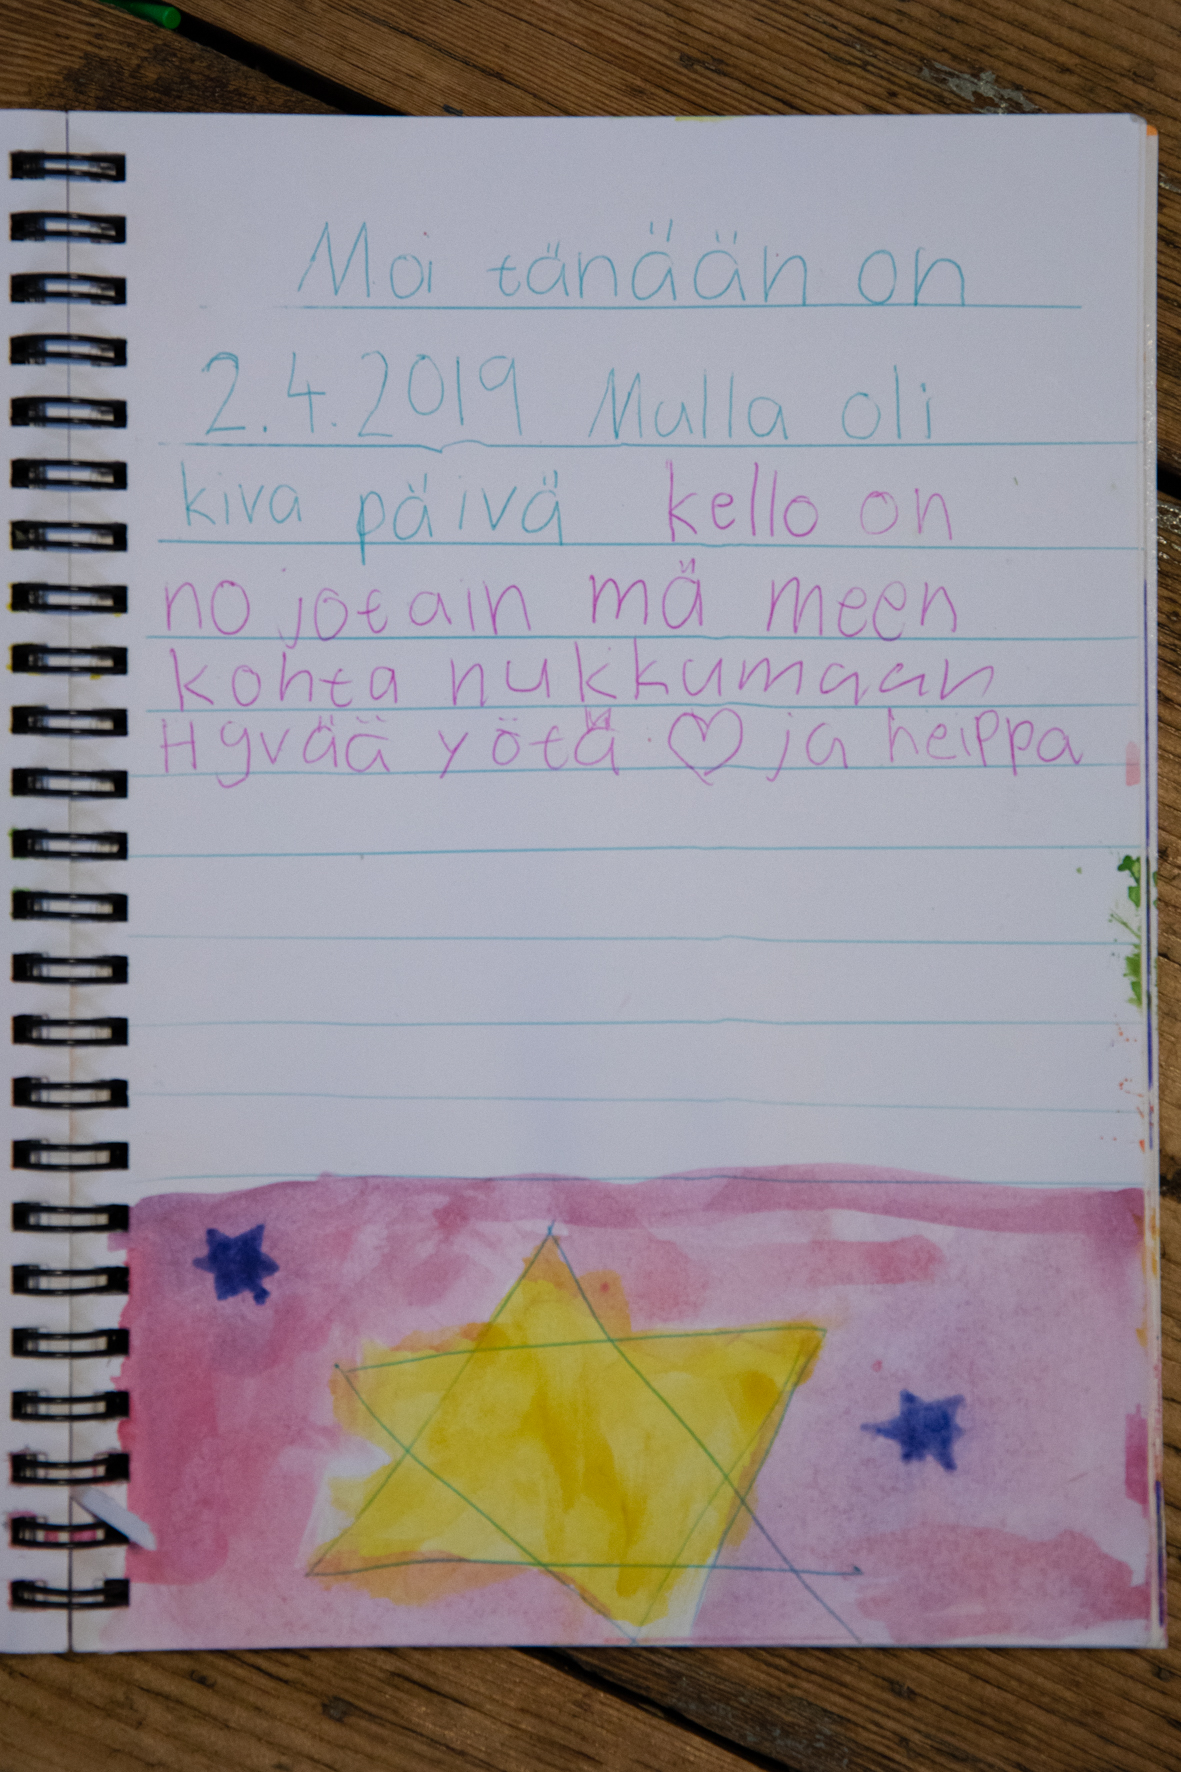 Moi tänään on
2.4.2019 Mulla oli
kiva päivä kello on
no jotain mä meen
kohta nukkumaan
Hyvää yötä ♡ ja heippa